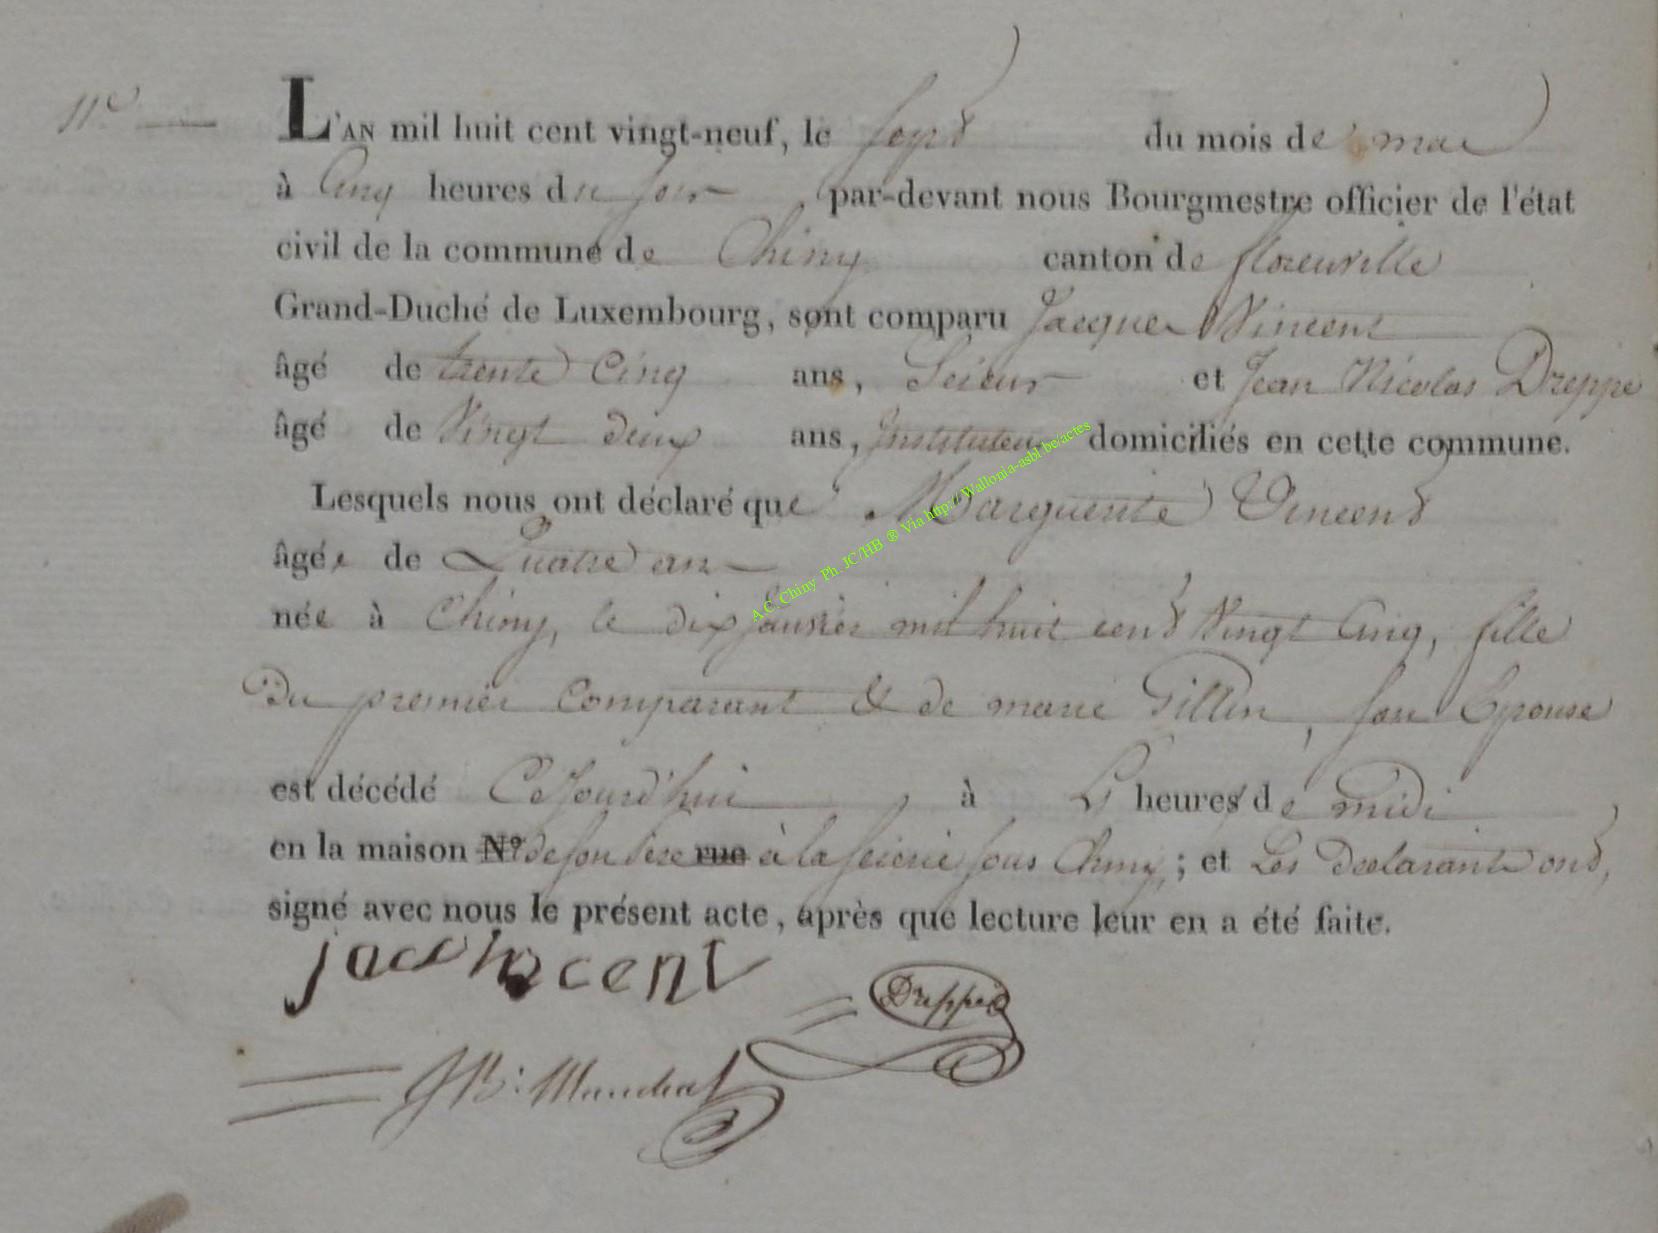 11e
L'AN mil huit cent vingt-neuf, le sept du mois de mai
à Cinq heures du soir, par-devant nous Bourgmestre officier de l'état
civil de la commune de Chiny canton de florenville
Grand-Duché de Luxembourg, sont comparu Jacques Vincent
âgé de trente Cinq ans, Scieur et Jean Nicolas Dreppe
âgé de Vingt deux ans, Instituteur domiciliés en cette commune.
Lesquels nous ont déclaré que Marguerite Vincent
âgée de Quatre an
née à Chiny, le dix Janvier mil huit cent Vingt Cinq, fille
Du premier Comparant & de marie Gillin, son Epouse
est décédé Cejourd'hui, à heures de midi
en la maison N° de son père rue à la scierie sous Chiny; et Les Déclarants ont,
signé avec nous le présent acte, après que lecture leur en a été faite.
jacq vincent
Dreppe
A.C. Chiny Ph. JC/HB ® Via http://Wallonia-asbl.be/actes